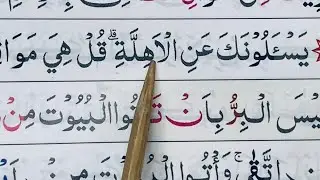 يَسْـَٔلُونَكَ عَنِ الْاَهِلَّةِ ؕ قُلْ هِيَ مَوَا
يْسَ الْبِرُّ بِاَنْ تَاْتُوا الْبُيُوْتَ مِنْ
اتَّقٰى ۚ وَاْتُوا الْبُيُوْتَ مِنْ